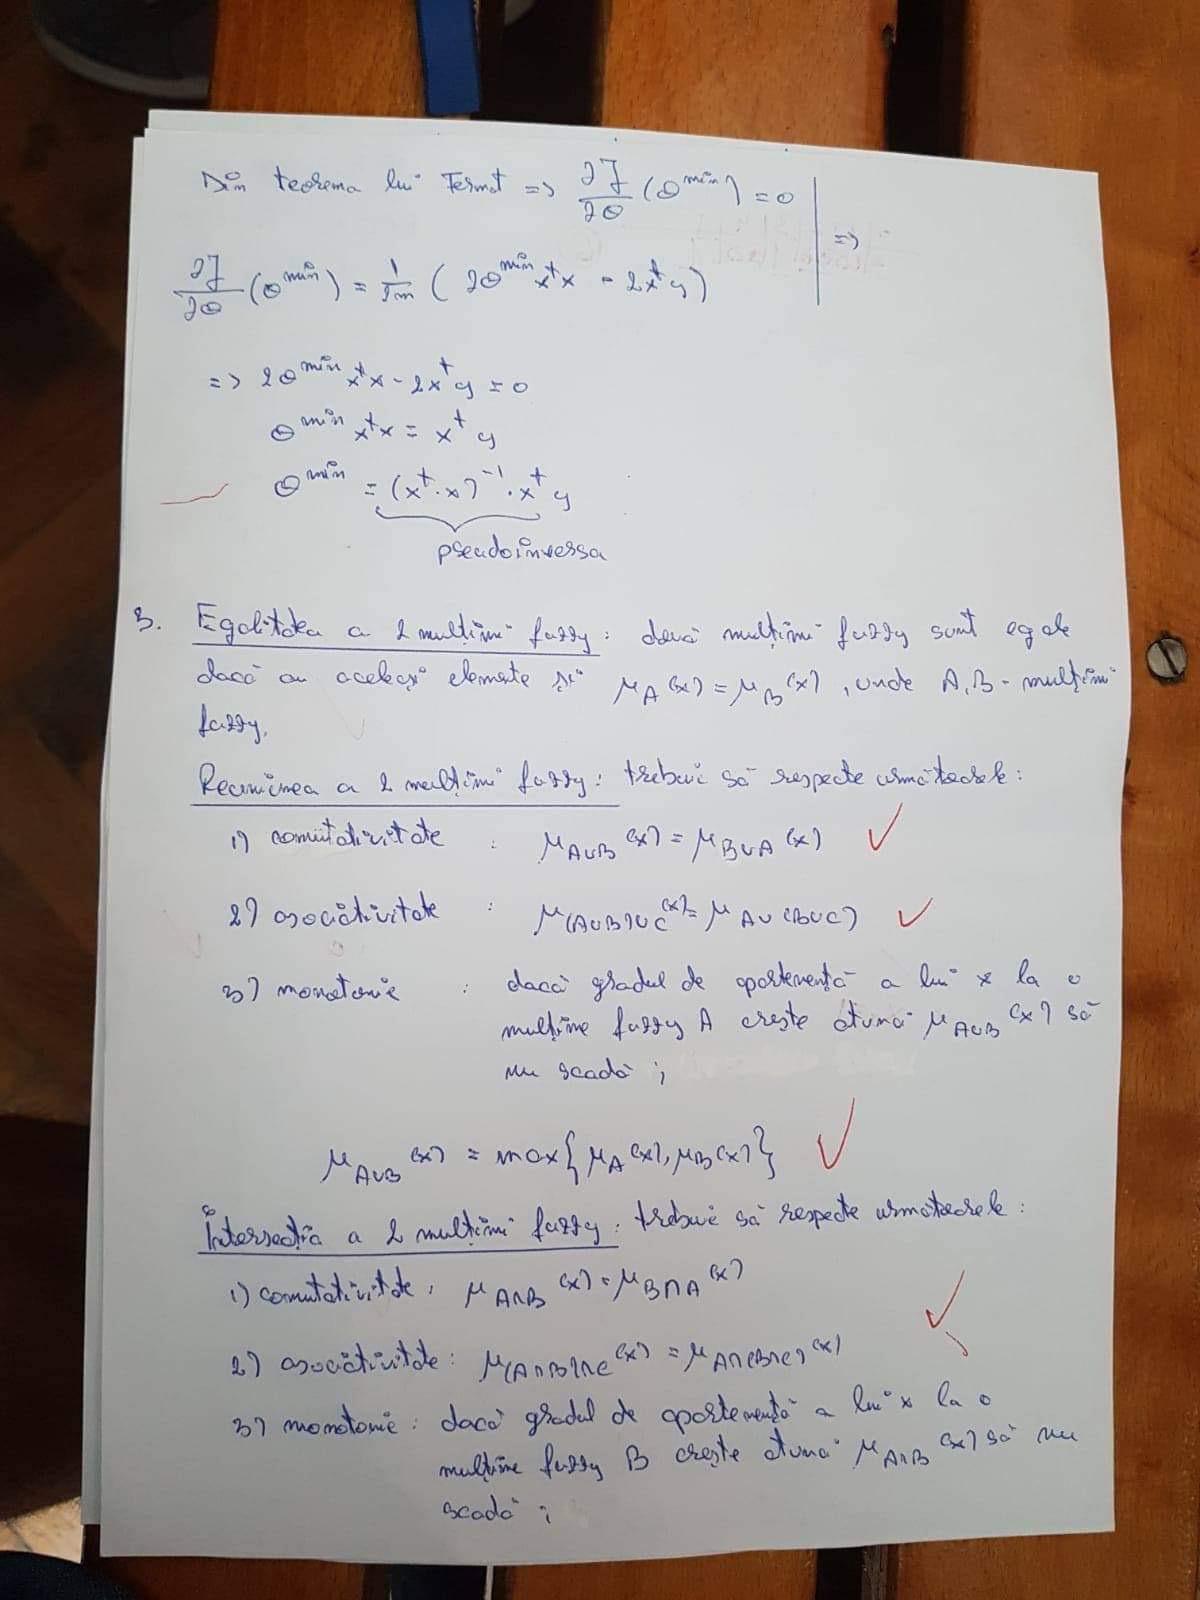 Din teorema lui Fermat => ∂J/∂θ (θ^min) = 0
=>
∂J/∂θ (θ^min) = 1/2m ( 2θ^min x^t x - 2x^t y )
=> 2θ^min x^t x - 2x^t y = 0
θ^min x^t x = x^t y
θ^min = (x^t · x)^-1 · x^t y
pseudoinversa
3. Egalitatea a 2 mulțimi fuzzy : două mulțimi fuzzy sunt egale
dacă au aceleași elemente și μ_A(x) = μ_B(x) , unde A, B - mulțimi
fuzzy.
Reuniunea a 2 mulțimi fuzzy : trebuie să respecte următoarele :
1) comutativitate : μ_A∪B (x) = μ_B∪A (x)
2) asociativitate : μ_(A∪B)∪C (x) = μ_A∪(B∪C)
3) monotonie : dacă gradul de apartenență a lui x la o
mulțime fuzzy A crește atunci μ_A∪B (x) să
nu scadă ;
μ_A∪B (x) = max{ μ_A(x), μ_B(x) }
Intersecția a 2 mulțimi fuzzy : trebuie să respecte următoarele :
1) comutativitate : μ_A∩B (x) = μ_B∩A (x)
2) asociativitate : μ_(A∩B)∩C (x) = μ_A∩(B∩C) (x)
3) monotonie : dacă gradul de apartenență a lui x la o
mulțime fuzzy B crește atunci μ_A∩B (x) să nu
scadă ;